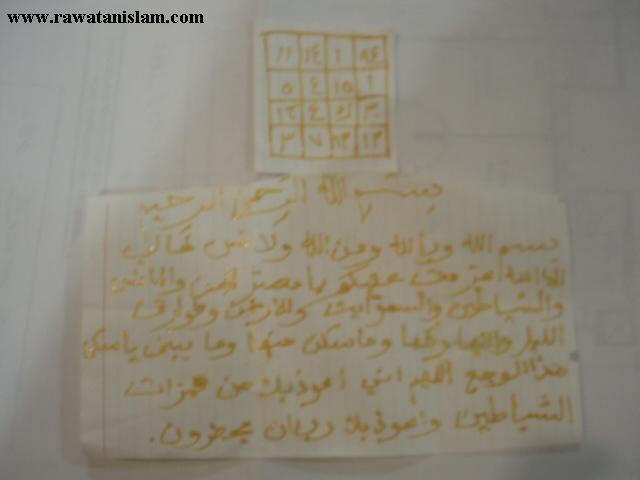 www.rawatanislam.com
١١ ١٤ ١
٥ ٤ ١٥ ١
١٢ ٤
٣ ٧ ١٢
بسم الله الرحمن الرحيم
بسم الله وبالله ومن الله ولا غالب
الا الله عزمت عليكم يا معشر الجن والانس
والشياطين والسموات والارض وطوارق
الليل والنهار وما سكن
هذا الوجع اللهم اني اعوذبك من همزات
الشياطين واعوذبك ربي ان يحضرون.